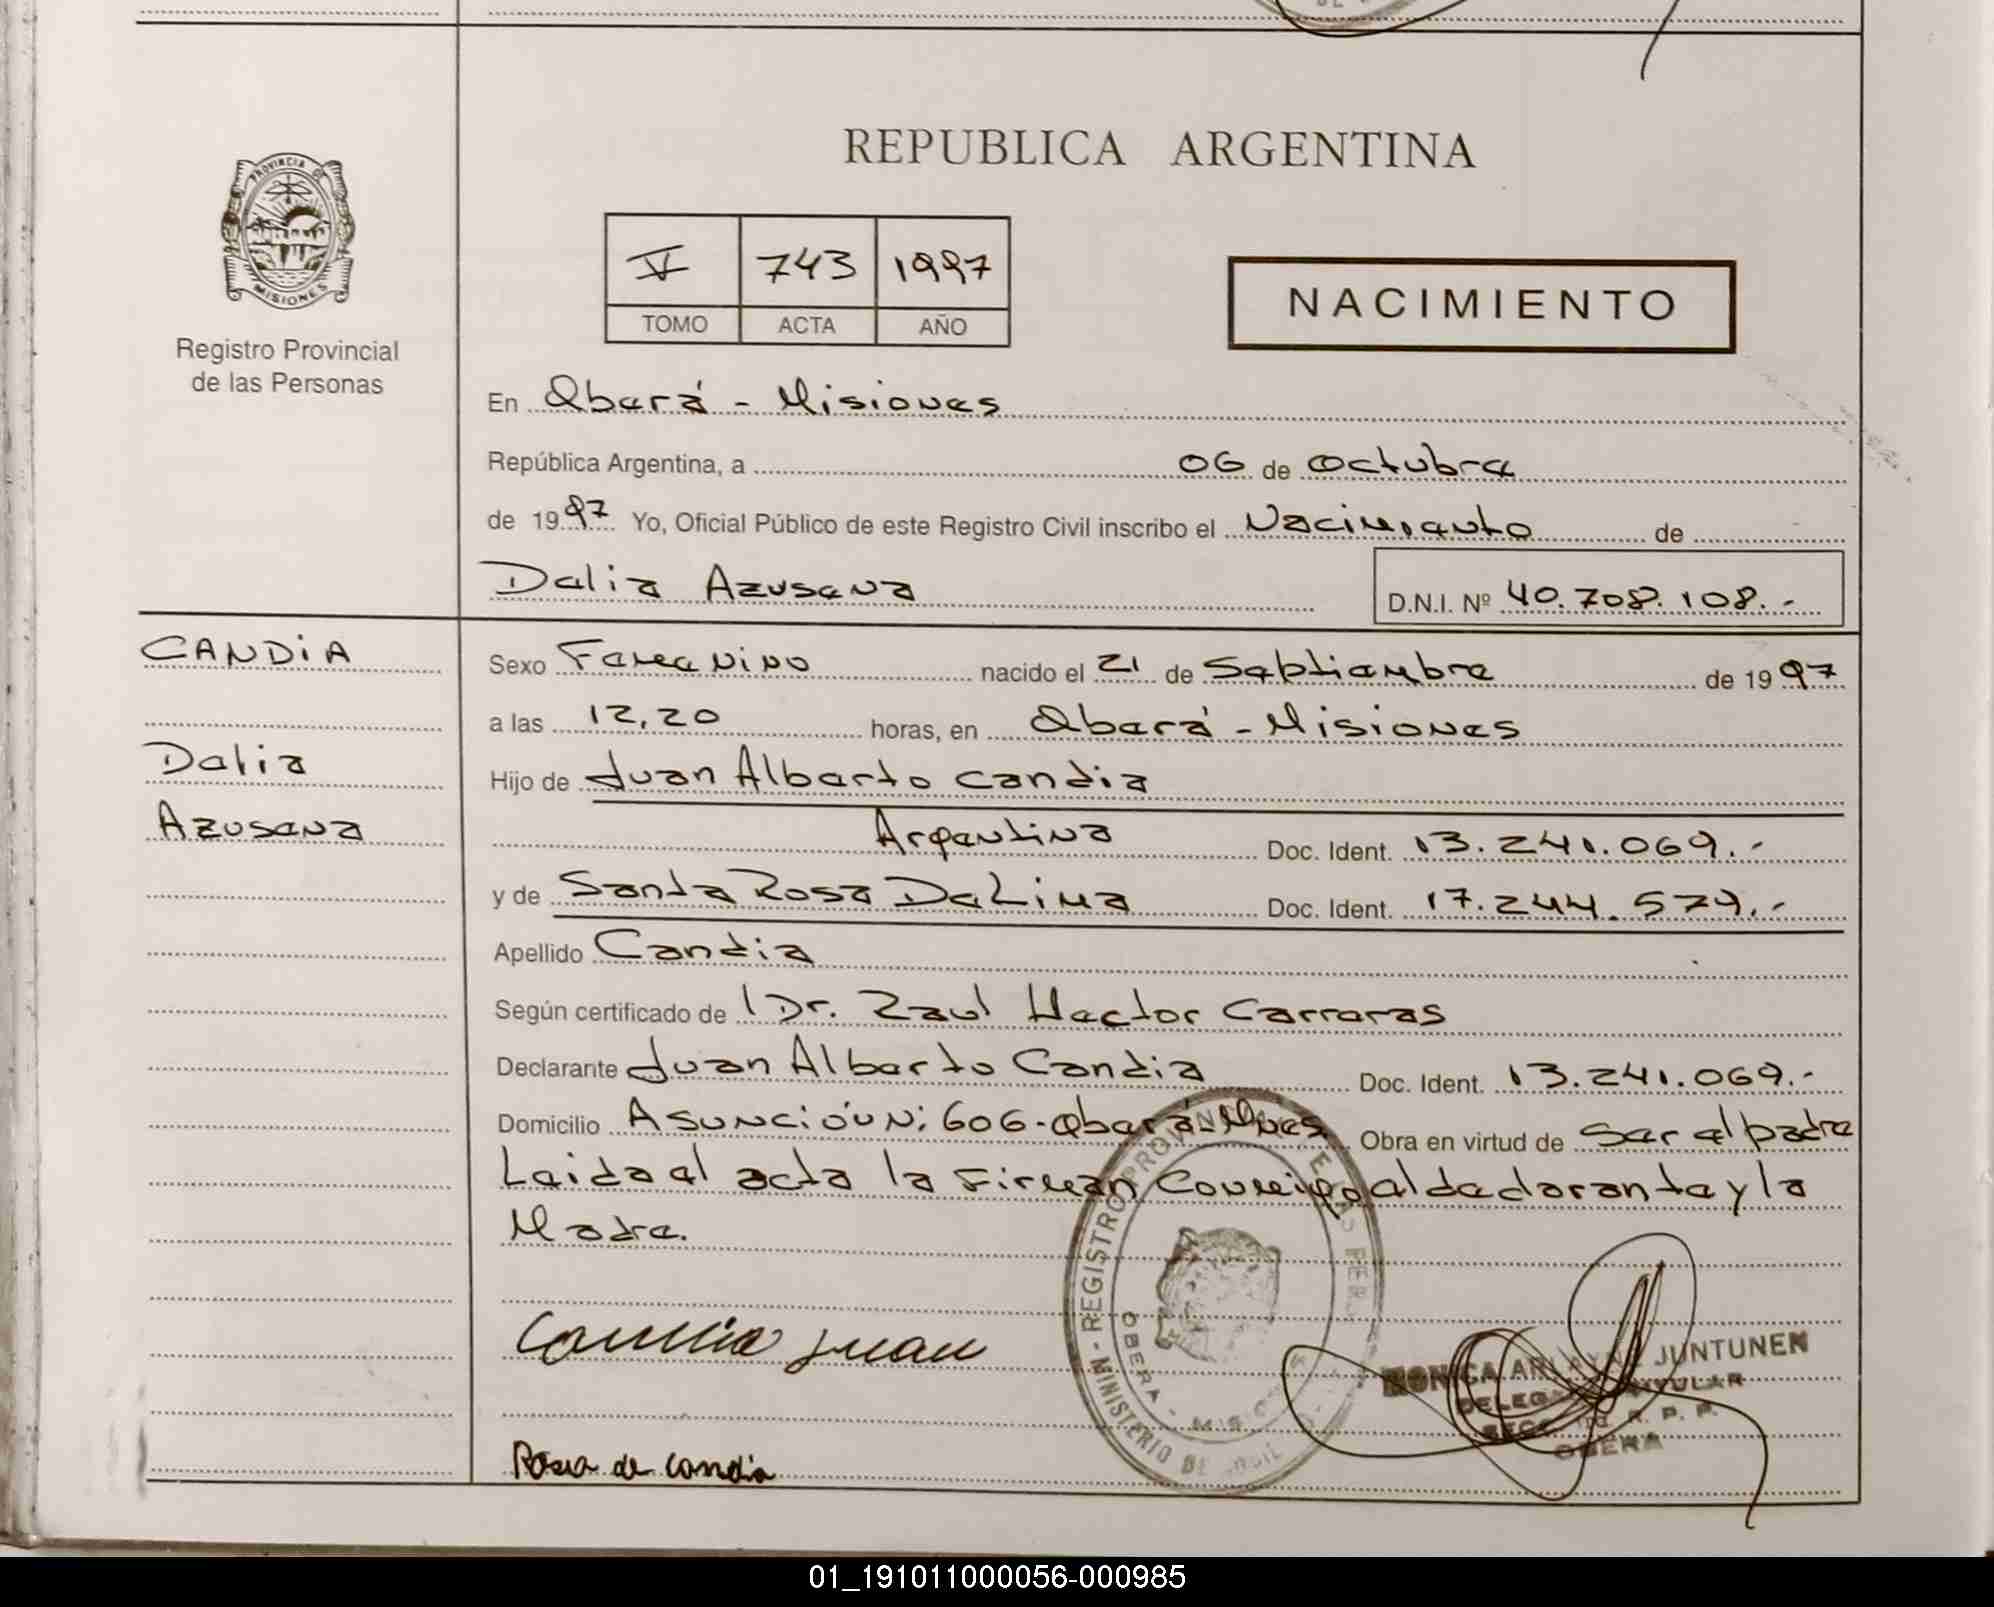 REPUBLICA ARGENTINA
PROVINCIA DE
MISIONES
Registro Provincial
de las Personas
V 743 1997
TOMO ACTA AÑO
NACIMIENTO
En Oberá - Misiones
República Argentina, a 06 de Octubre
de 1997 Yo, Oficial Público de este Registro Civil inscribo el Nacimiento de
Dalia Azusena D.N.I. Nº 40.708.108.-
CANDIA
Dalia
Azusena
Sexo Femenino nacido el 21 de Sebtiembre de 1997
a las 12,20 horas, en Oberá - Misiones
Hijo de Juan Alberto Candia
Argentina Doc. Ident. 13.241.069.-
y de Santa Rosa DeLima Doc. Ident. 17.244.579.-
Apellido Candia
Según certificado de Dr. Raul Hector Carreras
Declarante Juan Alberto Candia Doc. Ident. 13.241.069.-
Domicilio Asunción N: 606-Oberá-Mnes Obra en virtud de Ser el padre
Leida el acta la Firman Conmigo el declarante y la
Madre.
Candia Juan
REGISTRO PROVINCIAL DE LAS PERSONAS
MINISTERIO DE
OBERA -
MONICA ARLAYNE JUNTUNEN
R. P. P.
OBERA
Rosa de Candia
01_191011000056-000985